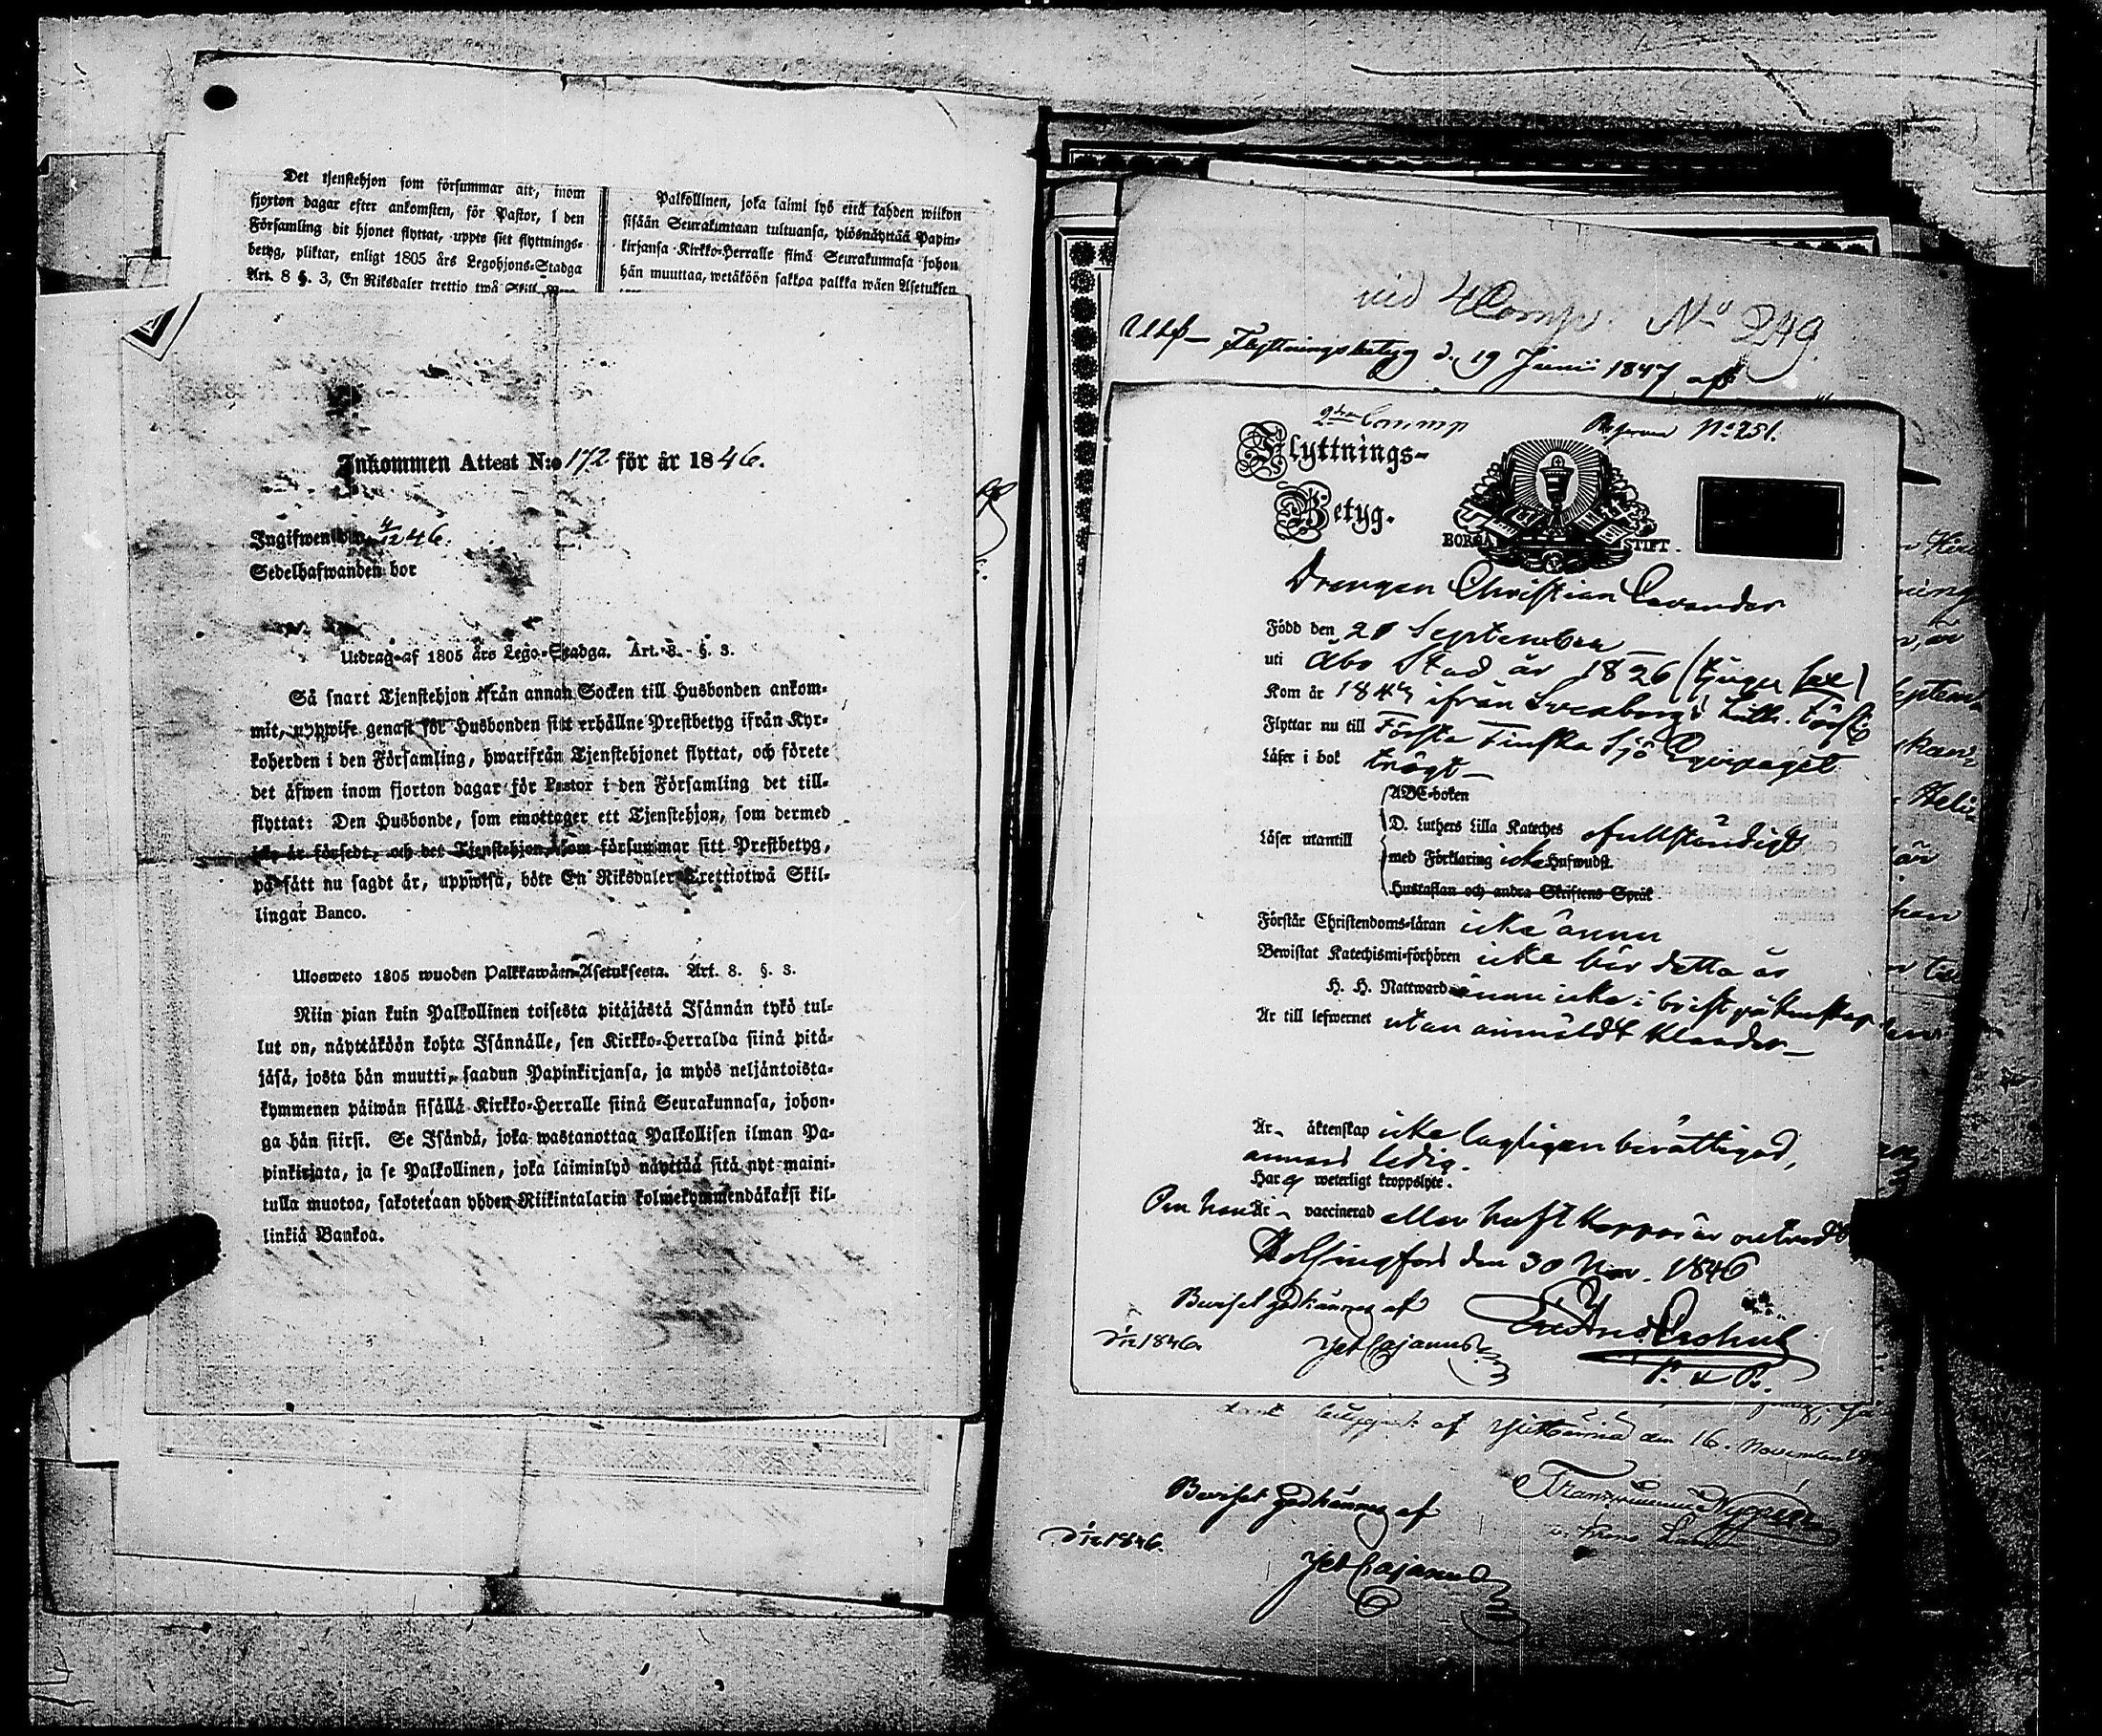 Det tjenstehjon som försummar att, inom
fjorton dagar efter ankomsten, för Pastor, i den
Församling dit hjonet flyttat, uppte sitt flyttnings-
betyg, pliktar, enligt 1805 års Legohjons-Stadga
Art. 8 §. 3, En Riksdaler trettio twå Skill.
Palkollinen, joka laimi lyö että kahden wiikon
sisään Seurakuntaan tultuansa, ylösnäyttää Papin-
kirjansa Kirkko-Herralle siinä Seurakunnasa johon
hän muuttaa, wetäköön sakkoa palkka wäen Asetuksen
Inkommen Attest N:o 172 för år 1846.
Ingifwen den 4/12 46.
Sedelhafwanden bor
Utdrag af 1805 års Lego-Stadga. Art. 8. §. 3.
Så snart Tjenstehjon ifrån annan Socken till Husbonden ankom-
mit, uppwise genast för Husbonden sitt erhållne Prestbetyg ifrån Kyr-
koherden i den Församling, hwarifrån Tjenstehjonet flyttat, och förete
det äfwen inom fjorton dagar för Pastor i den Församling det till-
flyttat: Den Husbonde, som emottager ett Tjenstehjon, som dermed
icke är försedt, och det Tjenstehjon, som försummar sitt Prestbetyg,
på sätt nu sagdt är, uppwisa, böte En Riksdaler Trettiotwå Skil-
lingar Banco.
Ulosweto 1805 wuoden Palkkawäen-Asetuksesta. Art. 8. §. 3.
Niin pian kuin Palkollinen toisesta pitäjästä Isännän tykö tul-
lut on, näyttäköön kohta Isännälle, sen Kirkko-Herralda siinä pitä-
jäsä, josta hän muutti, saadun Papinkirjansa, ja myös neljäntoista-
kymmenen päiwän sisällä Kirkko-Herralle siinä Seurakunnasa, johon-
ga hän siirsi. Se Isändä, joka wastanottaa Palkollisen ilman Pa-
pinkirjata, ja se Palkollinen, joka laiminlyö näyttää sitä nyt maini-
tulla muotoa, sakotetaan yhden Riikintalarin kolmekymmendäkaksi kil-
linkiä Bankoa.
vid 4 Comp. No 249.
Utsf- Flyttningsbetyg d. 19 Junii 1847 af
2dra Comp No 251.
Flyttnings-
Betyg.
BORGÅ STIFT.
Drengen Christian Cavander
Född den 21 September
uti Åbo Stad år 1826
Kom år 184 ifrån Sveaborgs Luth. Förs.
Flyttar nu till Första Finska Sjö Equipaget
Läser i bok trögt-
ABC-boken
Läser utantill D. Luthers Lilla Kateches ofullständigt
med Förklaring icke Hufwudst.
Hustaflan och andra Skriftens Språk
Förstår Christendoms-läran icke ännu
Bewistat Katechismi-förhören icke här detta år
H. H. Nattward ännu icke i brist på kunskap
Är till lefwernet utan anmäldt klander-
Är äktenskap icke lagligen berättigad,
annars ledig.
Har ej weterligt kroppslyte.
Om han Är vaccinerad eller haft koppor är outredt
Helsingfors den 30 Nov. 1846
Beviset godkännes af
1/12 1846. Cajanus
P. v. P.
af den 16. November
Beviset godkännes af
1/12 1846.
Cajanus